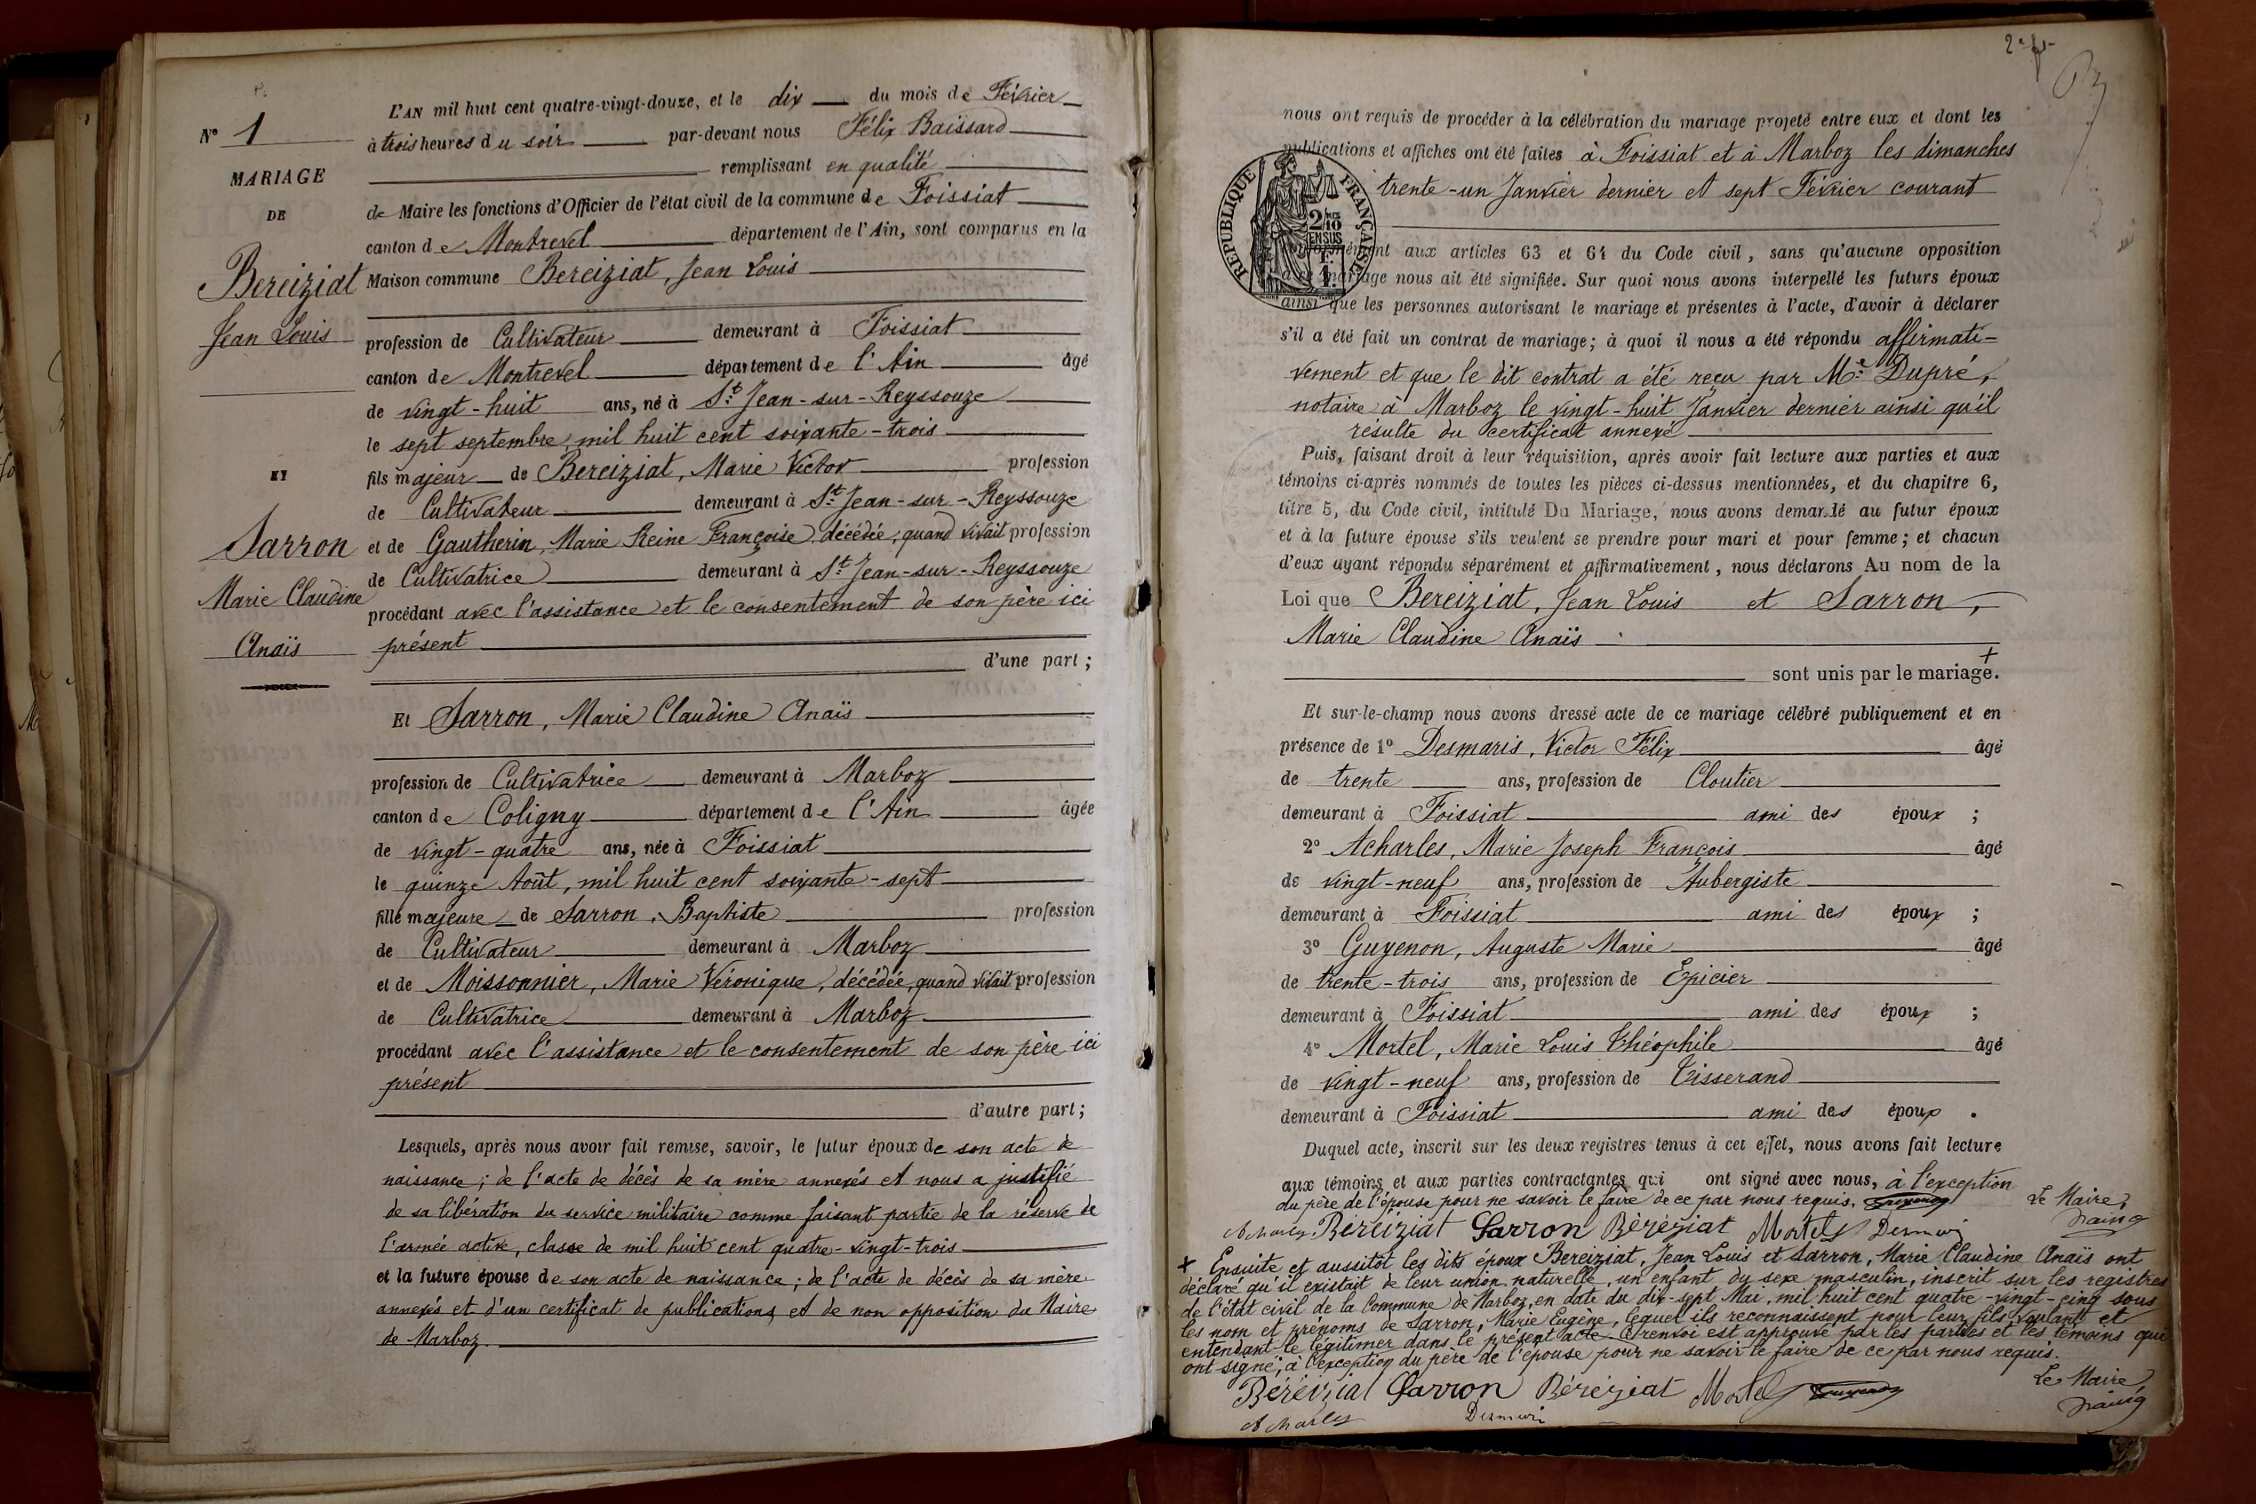 L'AN mil huit cent quatre-vingt-douze, et le dix du mois de Février
N° 1
à trois heures du soir par-devant nous Félix Baissard
remplissant en qualité
MARIAGE
de Maire les fonctions d'Officier de l'état civil de la commune de Foissiat
DE
canton de Montrevel département de l'Ain, sont comparus en la
Bereiziat
Maison commune Bereiziat, Jean Louis
Jean Louis
profession de Cultivateur demeurant à Foissiat
canton de Montrevel département de l'Ain âgé
de vingt-huit ans, né à St Jean-sur-Reyssouze
le sept septembre mil huit cent soixante-trois
ET
fils majeur de Bereiziat, Marie Victor profession
de Cultivateur demeurant à St Jean-sur-Reyssouze
Sarron
et de Gautherin, Marie Reine Françoise, décédée, quand vivait profession
de Cultivatrice demeurant à St Jean-sur-Reyssouze
Marie Claudine
procédant avec l'assistance et le consentement de son père ici
Anaïs
présent
d'une part ;
Et Sarron, Marie Claudine Anaïs
profession de Cultivatrice demeurant à Marboz
canton de Coligny département de l'Ain âgée
de vingt-quatre ans, née à Foissiat
le quinze Août, mil huit cent soixante-sept
fille majeure de Sarron, Baptiste profession
de Cultivateur demeurant à Marboz
et de Moissonnier, Marie Véronique, décédée, quand vivait profession
de Cultivatrice demeurant à Marboz
procédant avec l'assistance et le consentement de son père ici
présent
d'autre part ;
Lesquels, après nous avoir fait remise, savoir, le futur époux de son acte de
naissance ; de l'acte de décès de sa mère annexés et nous a justifié
de sa libération du service militaire comme faisant partie de la réserve de
l'armée active, classe de mil huit cent quatre-vingt-trois
et la future épouse de son acte de naissance ; de l'acte de décès de sa mère
annexés et d'un certificat de publications et de non opposition du Maire
de Marboz.
2e f
nous ont requis de procéder à la célébration du mariage projeté entre eux et dont les
publications et affiches ont été faites à Foissiat et à Marboz les dimanches
trente-un Janvier dernier et sept Février courant
RÉPUBLIQUE FRANÇAISE
2/10
EN SUS
conformément aux articles 63 et 64 du Code civil, sans qu'aucune opposition
à ce mariage nous ait été signifiée. Sur quoi nous avons interpellé les futurs époux
ainsi que les personnes autorisant le mariage et présentes à l'acte, d'avoir à déclarer
s'il a été fait un contrat de mariage ; à quoi il nous a été répondu affirmati-
vement et que le dit contrat a été reçu par Me Dupré,
notaire à Marboz le vingt-huit Janvier dernier ainsi qu'il
résulte du certificat annexé
Puis, faisant droit à leur réquisition, après avoir fait lecture aux parties et aux
témoins ci-après nommés de toutes les pièces ci-dessus mentionnées, et du chapitre 6,
titre 5, du Code civil, intitulé Du Mariage, nous avons demandé au futur époux
et à la future épouse s'ils veulent se prendre pour mari et pour femme ; et chacun
d'eux ayant répondu séparément et affirmativement, nous déclarons Au nom de la
Loi que Bereiziat, Jean Louis et Sarron,
Marie Claudine Anaïs
sont unis par le mariage. +
Et sur-le-champ nous avons dressé acte de ce mariage célébré publiquement et en
présence de 1° Desmaris, Victor Félix âgé
de trente ans, profession de Cloutier
demeurant à Foissiat ami des époux ;
2° Acharles, Marie Joseph François âgé
de vingt-neuf ans, profession de Aubergiste
demeurant à Foissiat ami des époux ;
3° Guyenon, Auguste Marie âgé
de trente-trois ans, profession de Epicier
demeurant à Foissiat ami des époux ;
4° Mortel, Marie Louis Théophile âgé
de vingt-neuf ans, profession de Tisserand
demeurant à Foissiat ami des époux.
Duquel acte, inscrit sur les deux registres tenus à cet effet, nous avons fait lecture
aux témoins et aux parties contractantes qui ont signé avec nous, à l'exception
du père de l'épouse pour ne savoir le faire de ce par nous requis. Guyenon Le Maire
Acharles Béréiziat Sarron Béréziat Mortel Desmaris
+ Ensuite et aussitôt les dits époux Bereiziat, Jean Louis et Sarron, Marie Claudine Anaïs ont
déclaré qu'il existait de leur union naturelle, un enfant du sexe masculin, inscrit sur les registres
de l'état civil de la Commune de Marboz, en date du dix-sept Mai, mil huit cent quatre-vingt-cinq sous
les nom et prénoms de Sarron, Marie Eugène, lequel ils reconnaissent pour leur fils voulant et
entendant le légitimer dans le présent acte. Ce renvoi est approuvé par les parties et les témoins qui
ont signé, à l'exception du père de l'épouse pour ne savoir le faire de ce par nous requis.
Béréiziat Sarron Béréziat Mortel Guyenon Le Maire
Acharles Desmaris